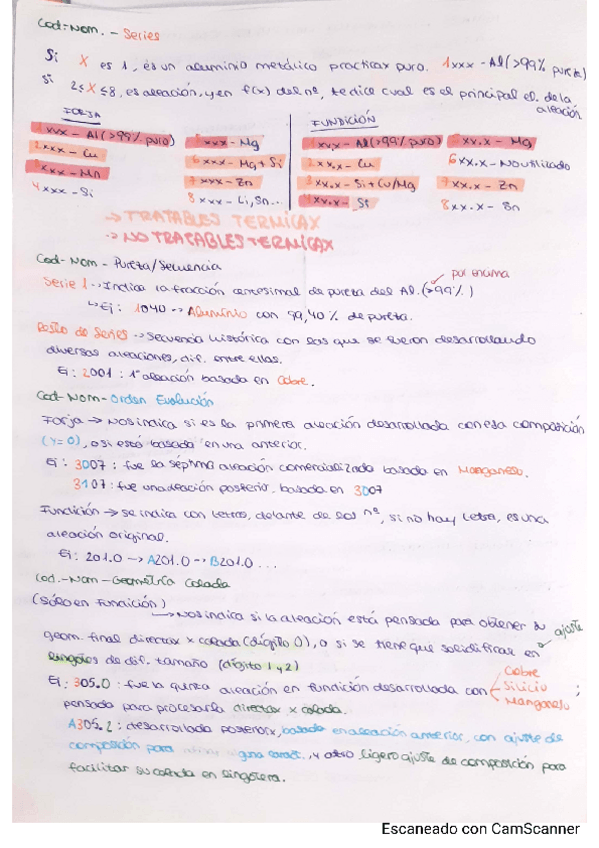 Cod-Nom. - Series
Si X es 1, es un aluminio metálico practicax puro. 1xxx - Al (>99% puro)
Si 2≤X≤8, es aleación, y en f(x) del nº, te dice cual es el principal el. de la
aleación
FORJA
1xxx - Al (>99% puro)
2xxx - Cu
3xxx - Mn
4xxx - Si
5xxx - Mg
6xxx - Mg + Si
7xxx - Zn
8xxx - Li, Sn...
FUNDICIÓN
1xx.x - Al (>99% puro)
2xx.x - Cu
3xx.x - Si + Cu/Mg
4xx.x - Si
5xx.x - Mg
6xx.x - No utilizado
7xx.x - Zn
8xx.x - Sn
-> TRATABLES TERMICAX
-> NO TRATABLES TERMICAX
Cod-Nom - Pureza/Secuencia
por encima
Serie 1 -> Indica la fracción centesimal de pureza del Al. (>99%)
↳ Ej: 1040 -> Aluminio con 99,40% de pureza.
Resto de Series -> Secuencia histórica con las que se fueron desarrollando
diversas aleaciones, dif. entre ellas.
Ej: 2001 : 1ª aleación basada en Cobre.
Cod-Nom-Orden Evolución
Forja -> Nos indica si es la primera aleación desarrollada con esa composición
(Y=0), o si está basada en una anterior.
Ej: 3007 : fue la séptima aleación comercializada basada en Manganeso.
3107 : fue una aleación posterior, basada en 3007
Fundición -> se indica con letras, delante de los nº, si no hay letra, es una
aleación original.
Ej: 201.0 -> A201.0 -> B201.0...
Cod.-Nom-Geometría Colada
(Sólo en Fundición)
-> Nos indica si la aleación está pensada para obtener su ajuste
geom. final directax x colada (dígito 0), o si se tiene que solidificar en
lingotes de dif. tamaño (dígito 1 y 2)
Ej: 305.0 : fue la quinta aleación en fundición desarrollada con Cobre Silicio Manganeso ;
pensada para procesarla directax x colada.
A305.2 : desarrollada posteriorx, basada en aleación anterior, con ajuste de
composición para caract., y otro ligero ajuste de composición para
facilitar su colada en lingotera.
Escaneado con CamScanner